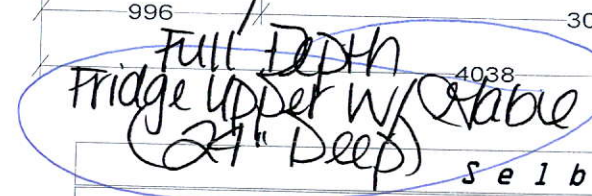 996
30
Full Depth
4038
Fridge Upper W/ Gable
(24" Deep)
Selb